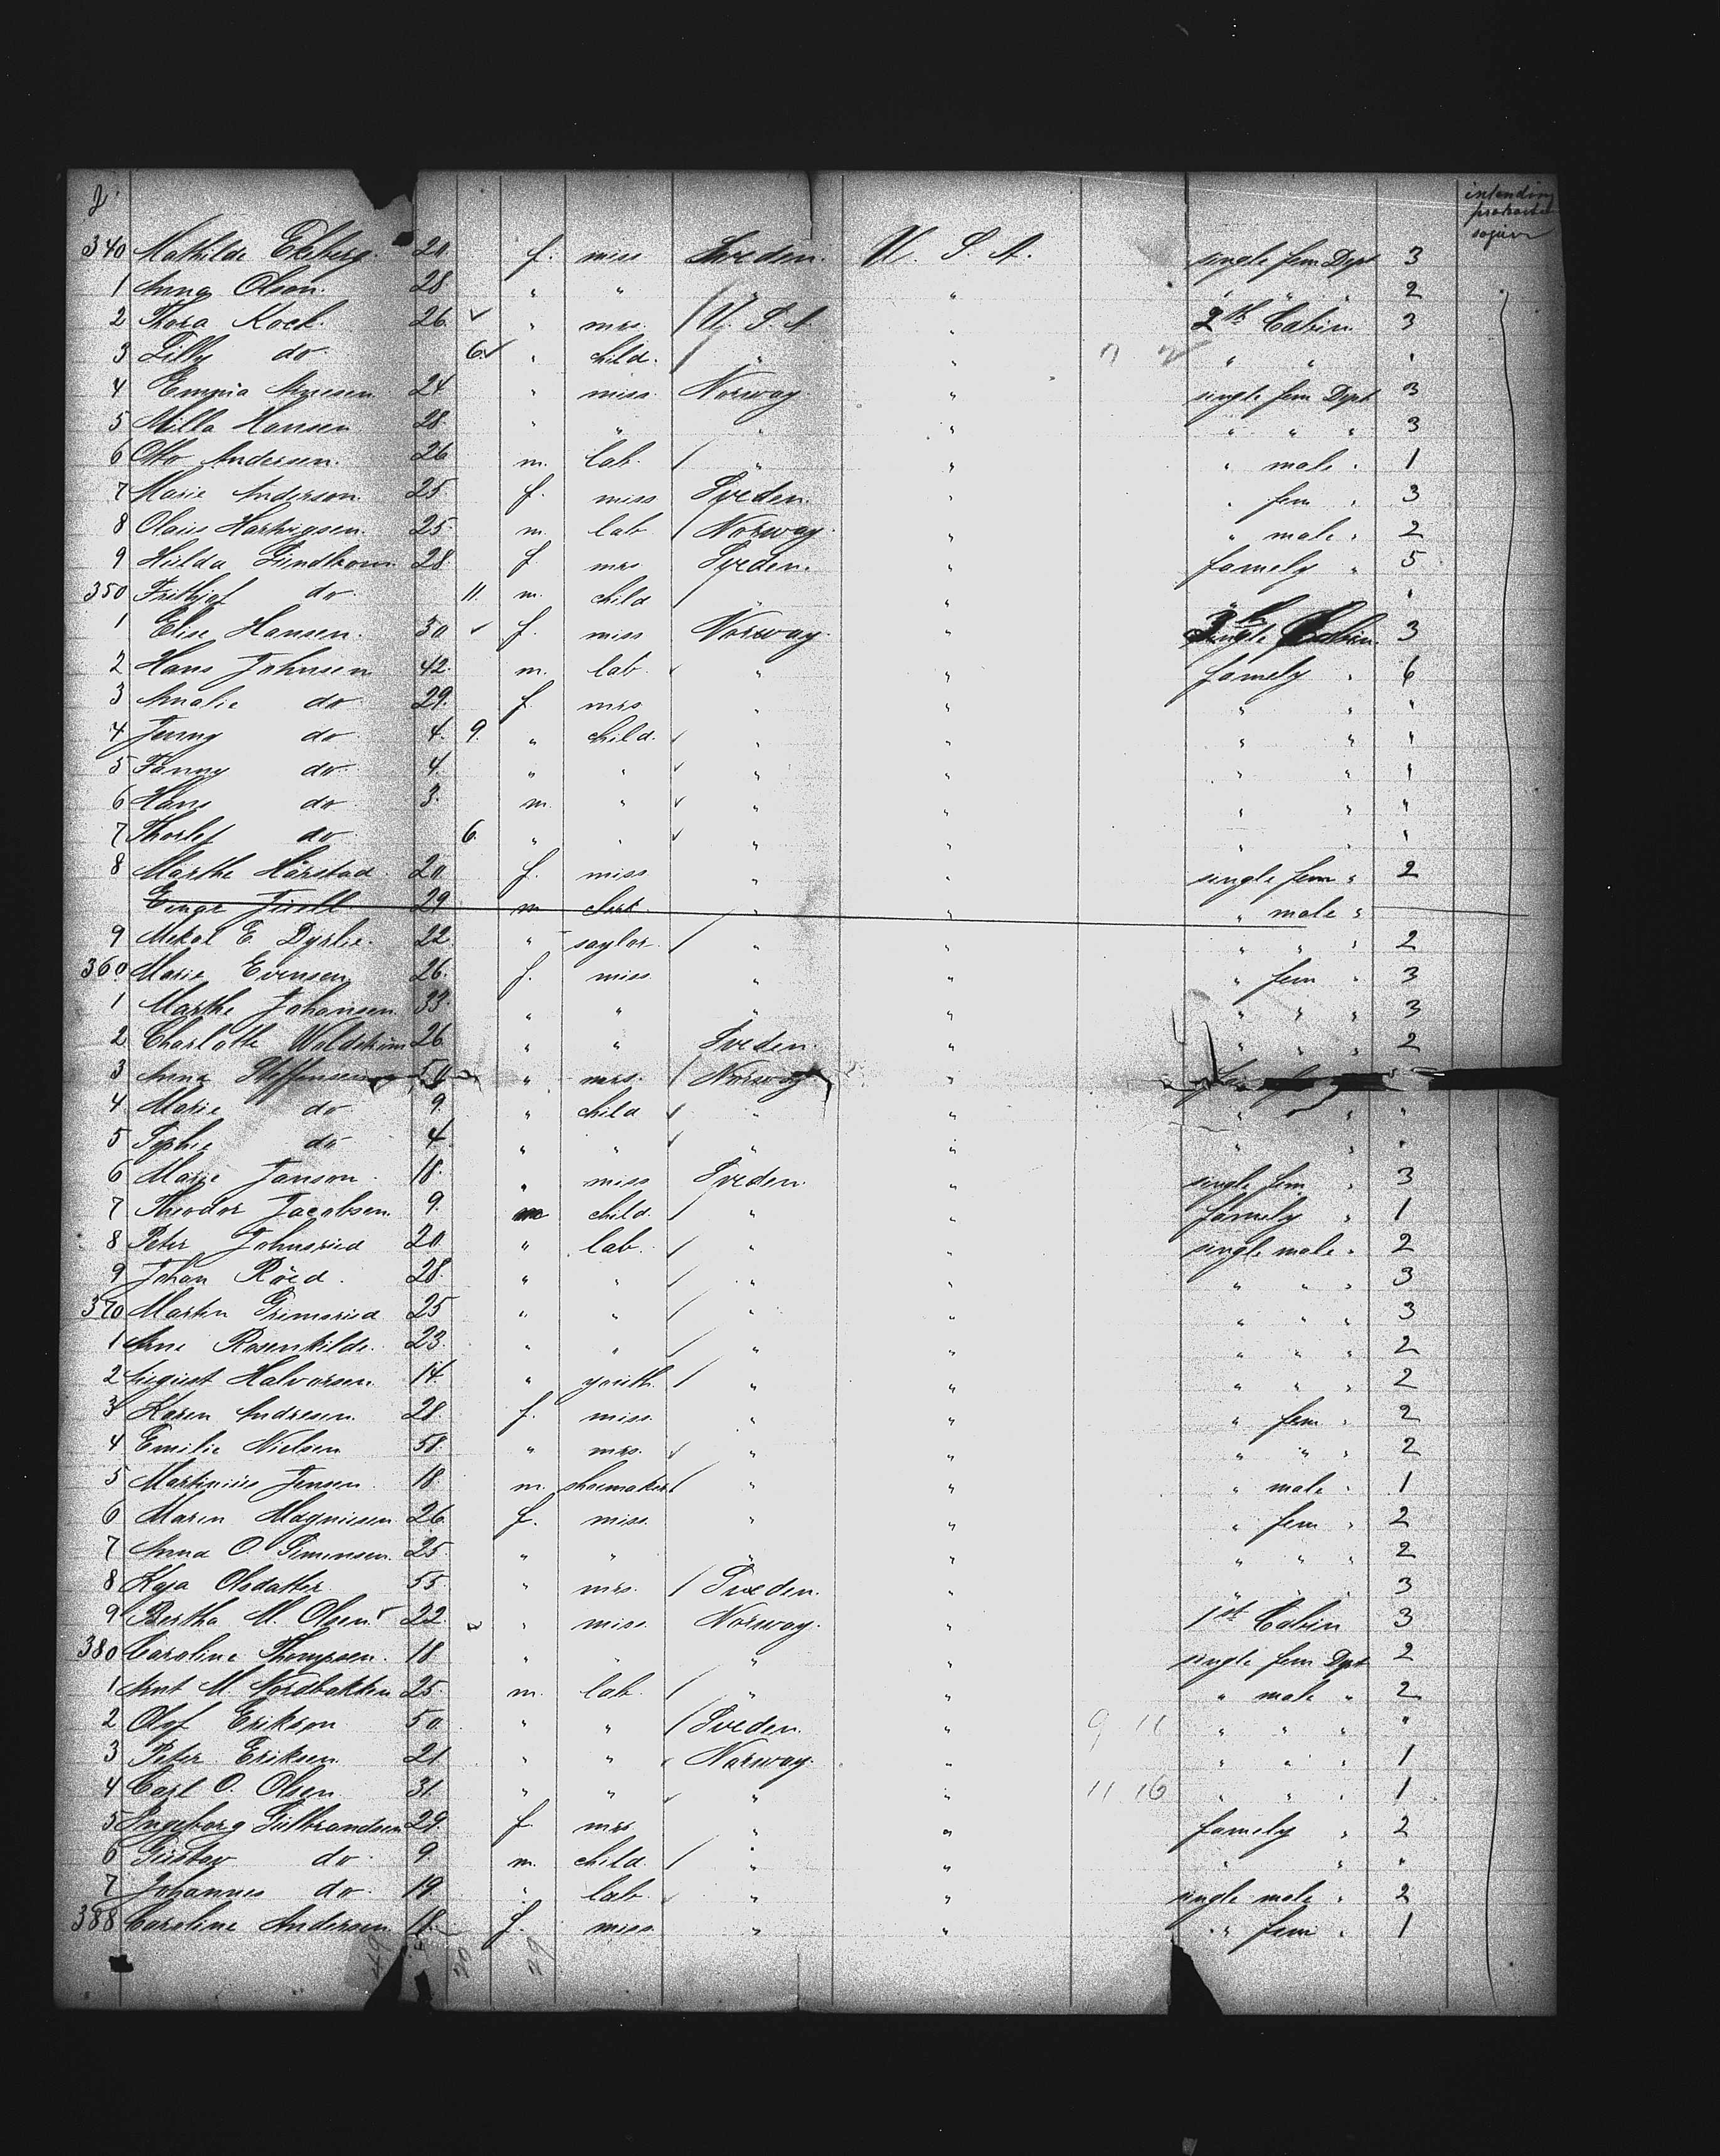 intending
protracted
sojourn
340 Mathilde Ekeberg. 20. f. miss Sweden. U. S. A. single fem Dept 3
1 Anna Olson. 28 " " " " " " " 2
2 Thora Koch. 26. ✓ " mrs. / U. S. A. " 2th Cabin 3
3 Lilly do 6. ✓ " child. / " " " " "
4 Emma Arnesen 24 " miss. Norway. " single fem Dept 3
5 Milla Hansen 28. " " " " " " " 3
6 Otto Andersen. 26 m. lab. / " " " male " 1
7 Marie Anderson. 25. f. miss Sweden. " " fem " 3
8 Olais Hartvigsen. 25. m. lab / Norway. " " male " 2
9 Hulda Lindblom 28. f mrs Sweden. " famely " 5
350 Frithjof do 11. m. child / " " " "
1 Elise Hansen. 30 ✓ f. miss Norway. " Cabin 3
2 Hans Johnsen 42. m. lab. ✓ " " famely " 6
3 Amalie do 29. f. mrs " " " " "
4 Jenny do 4. 9. " child. ✓ " " " " "
5 Fanny do 4. " " ✓ " " " " "
6 Hans do 3. m. " ✓ " " " " "
7 Thorlef do 6. " " ✓ " " " " "
8 Marthe Harstad. 20. f. miss " " single fem " 2
Einar Juell 29 m " " " male "
9 Mekal E. Dyrlie. 22. " saylor. / " " " " " 2
360. Marie Evensen 26. f. miss. " " " fem " 3
1 Marthe Johansen. 33. " " " " " " " 3
2 Charlotte 26 " " Sweden. " " " " 2
3 Anna Steffensen " mrs. / Norway "
4 Marie do 9. " child ✓ " " " " "
5 Sophie do 4. " " ✓ " " " " "
6 Marie Janson. 18. " miss Sweden. " single fem " 3
7 Theodor Jacobsen 9. m child / " " famely " 1
8 Peter Johnsrud 20 " lab. / " " single male " 2
9 Johan Röed. 28. " " / " " " " " 3
370 Martin Grimsrud 25 " " / " " " " " 3
1 Arne Rosenkilde. 23. " " / " " " " " 2
2 August Halvorsen. 14. " youth. / " " " " " 2
3 Karen Andresen. 28. f. miss. " " " fem " 2
4 Emilie Nielsen 58. " mrs. ✓ " " " " " 2
5 Martinius Jensen. 18. m. shoemaker / " " " male " 1
6 Maren Magnussen 26. f. miss. " " " fem " 2
7 Anna O. Simensen. 25. " " " " " " " 2
8 Kaja Olsdatter. 55. " mrs. / Sweden. " " " " 3
9 Bertha M. Olsen 22. ✓ " miss. Norway. " 1st Cabin 3
380 Caroline Thompsen. 18 " " " " single fem Dept 2
1 Arnt M. Nordbakken 25. m. lab. / " " " male " 2
2 Olof Erikson 50. " " / Sweden. " 9 11 " " " "
3 Peter Eriksen. 21 " " ✓ Norway. " " " " 1
4 Carl O. Olsen. 31. " " ✓ " " 11 16 " " " 1
5 Ingeborg Gulbrandsen 29. f. mrs. " " famely " 2
6 Gustav do 9. m. child. / " " " " "
7 Johannes do 19. " lab. ✓ " " single male " 2
388 Caroline Andersen 18. f. miss. " " " fem " 1
49 20 29